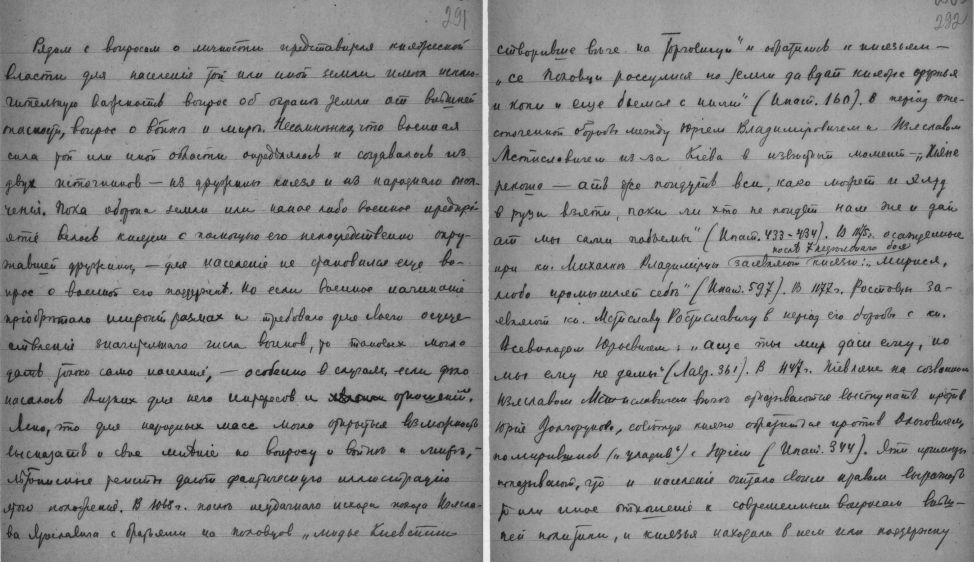 291
Рядом с вопросом о личности представителя княжеской
власти для населенiе той или иной земли имел исклю-
чительную важность вопрос об охране земли от внѣшней
опасности, вопрос о войнѣ и мирѣ. Несомнѣнно, что военная
сила той или иной области опредѣлялась и создавалась из
двух источников — из дружины князя и из народнаго опол-
ченiя. Пока оборона земли или какое либо военное предпрi-
ятiе велось князем с помощью его непосредственно окру-
жавшей дружины, — для населенiе не становился еще во-
прос о военной его поддержкѣ. Но если военное начинанiе
прiобрѣтало широкiй размах и требовало для своего осуще-
ствленiе значительнаго числа воинов, то таковых могло
дать только само населенiе, — особенно в случаях, если дѣло
касалось близких для него интересов и отношенiй.
Ясно, что для народных масс могла открыться возможность
высказать и свое мнѣнiе по вопросу о войнѣ и мирѣ, —
Лѣтописные тексты дают фактическую иллюстрацiю
этого положенiе. В 1068 г. послѣ неудачнаго исхода похода Изясла-
ва Ярославича с братьями на половцов „людье Киевстии
292
створивше вѣче на Торговищи" и обратились к князьям —
„се Половци россулися по земли да вдай княже оружья
и кони и еще бьемся с ними" (Ипат. 160). В перiод оже-
сточенной борьбы между Юрiем Владимiровичем и Изяславом
Мстиславичем из-за Кiева в извѣстный момент — „Кияне
рекоша — ать же пойдуть вси, како можеть и хлуд
в руци взяти, паки ли хто не пойдет нам же и дай
ат мы сами побьемы" (Ипат. 433-434). В осажденные
послѣ 7 недѣльнаго боя
при кн. Михалкѣ Владимiрцы заявляют князю: „Мирися,
любо промышляй собѣ" (Ипат. 597). В 1177 г. Ростовцы за-
являют кн. Мстиславу Ростиславичу в перiод его борьбы с кн.
Всеволодом Юрьевичем: „аще ты мир даси ему, но
мы ему не дамы" (Лавр. 361). В 1147 г. Кiевляне на созванном
Изяславом Мстиславичем вѣчѣ отказываются выступать против
Юрiя Долгорукого, совѣтуя князю
помирившись („уладив") с Юрiем (Ипат. 344). Эти примѣры
показывают, что и населенiе считало своим правом выражать
то или иное отношенiе к современным вопросам внѣш-
ней политики, и князья находили в нем или поддержку